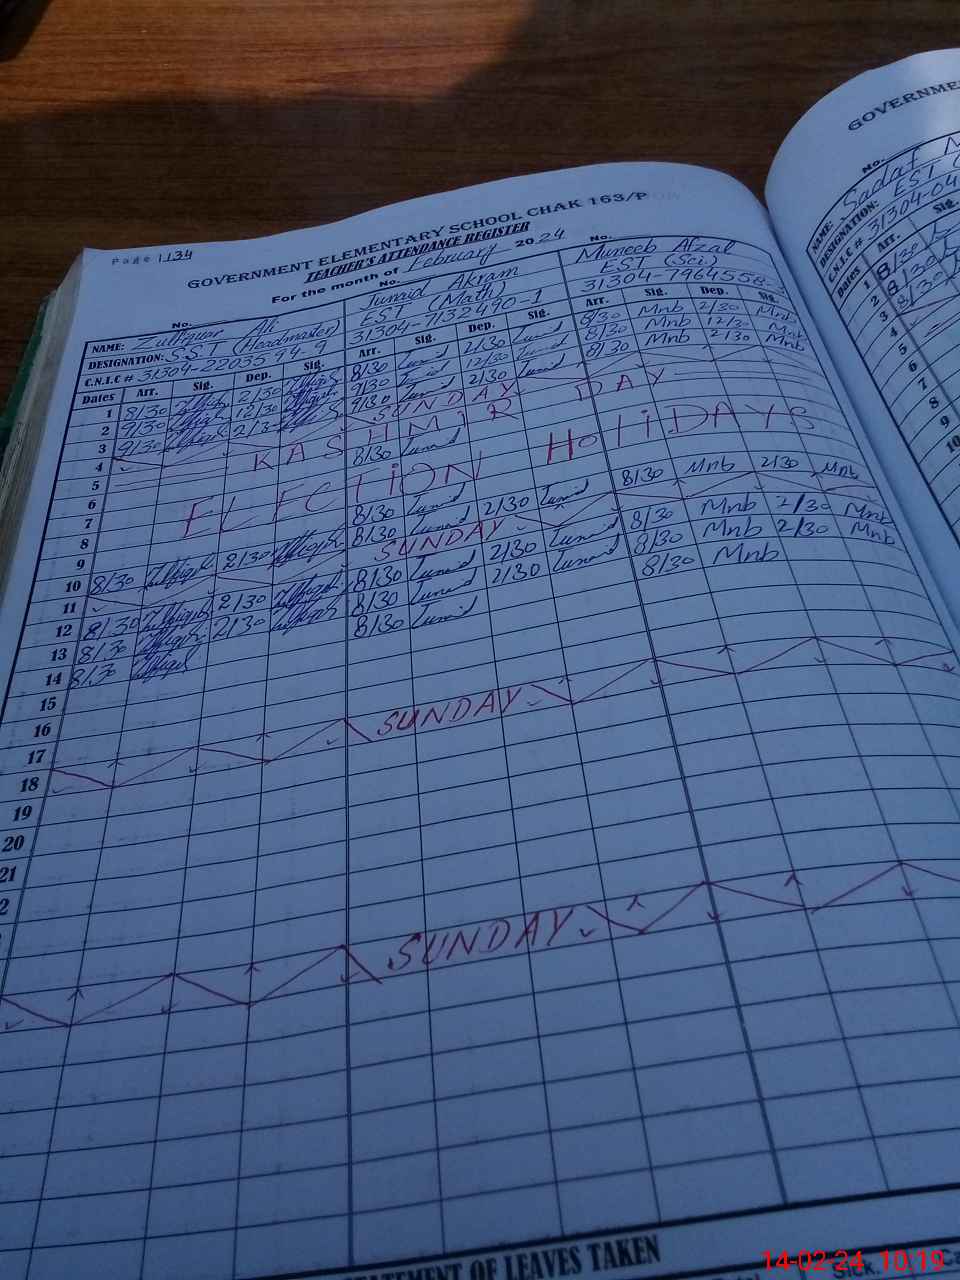 Page 1134
GOVERNMENT ELEMENTARY SCHOOL CHAK 163/P
TEACHER'S ATTENDANCE REGISTER
For the month of February 2024
No. No. No.
NAME: Zulfiqar Ali Junaid Akram Muneeb Afzal
DESIGNATION: S.S.T (Headmaster) EST (Math) EST (Sci)
C.N.I.C # 31304-2203594-9 31304-7132490-1 31304-7964558-
Dates Arr. Sig. Dep. Sig. Arr. Sig. Dep. Sig. Arr. Sig. Dep. Sig.
1 8/30 2/30 8/30 Junaid 2/30 Junaid 8/30 Mnb 2/30 Mnb
2 9/30 12/30 9/30 Junaid 12/30 Junaid 8/30 Mnb 12/30 Mnb
3 9/30 2/3 9/30 Junaid 2/30 Junaid 8/30 Mnb 2/30 Mnb
4 SUNDAY
5 KASHMIR DAY
6 8/30 Junaid
7 ELECTION HOLIDAYS
8
9 8/30 Junaid
10 8/30 2/30 8/30 Junaid 2/30 Junaid 8/30 Mnb 2/30 Mnb
11 SUNDAY
12 8/30 2/30 8/30 Junaid 2/30 Junaid 8/30 Mnb 2/30 Mnb
13 8/30 2/30 8/30 Junaid 2/30 Junaid 8/30 Mnb 2/30 Mnb
14 8/30 8/30 Junaid 8/30 Mnb
15
16
17
18 SUNDAY
19
20
21
2
SUNDAY
STATEMENT OF LEAVES TAKEN
GOVERNME
No.
NAME: Sadaf
DESIGNATION: EST
C.N.I.C # 31304-04
Dates Arr. Sig.
1 8/30
2 8/30
3 8/30
4
5
6
7
8
9
10
14-02-24 10:19